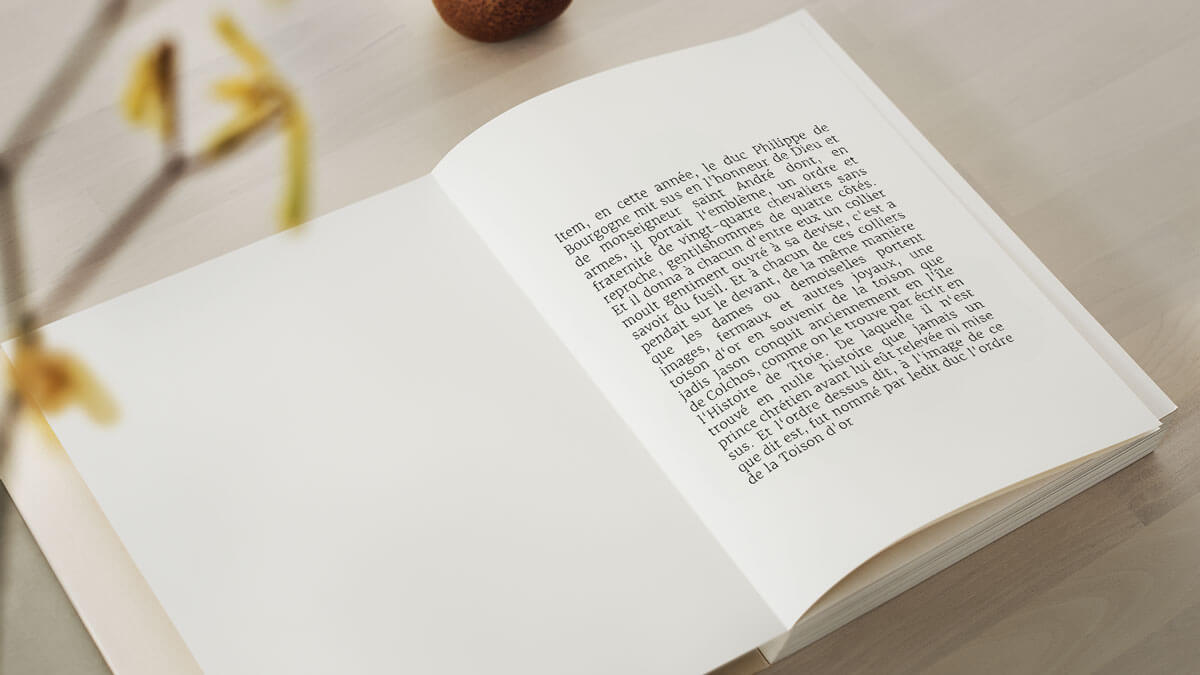 Item, en cette année, le duc Philippe de
Bourgogne mit sus en l'honneur de Dieu et
de monseigneur saint André dont, en
armes, il portait l'emblème, un ordre et
fraternité de vingt-quatre chevaliers sans
reproche, gentilshommes de quatre côtés.
Et il donna à chacun d'entre eux un collier
moult gentiment ouvré à sa devise, c'est a
savoir du fusil. Et à chacun de ces colliers
pendait sur le devant, de la même manière
que les dames ou demoiselles portent
images, fermaux et autres joyaux, une
toison d'or en souvenir de la toison que
jadis Jason conquit anciennement en l'île
de Colchos, comme on le trouve par écrit en
l'Histoire de Troie. De laquelle il n'est
trouvé en nulle histoire que jamais un
prince chrétien avant lui eût relevée ni mise
sus. Et l'ordre dessus dit, à l'image de ce
que dit est, fut nommé par ledit duc l'ordre
de la Toison d'or